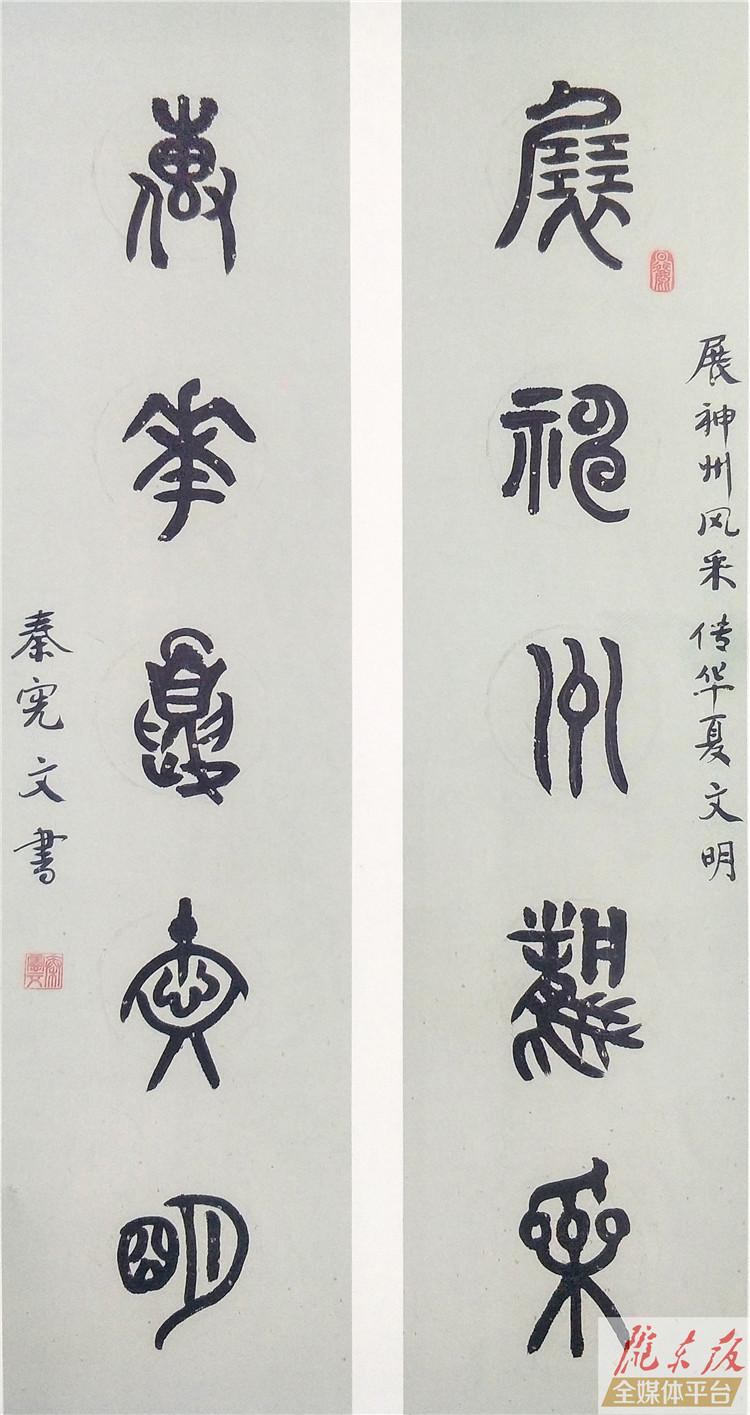 展神州风采
展神州风采传华夏文明
传华夏文明
秦宪文书
陇东报
全媒体平台